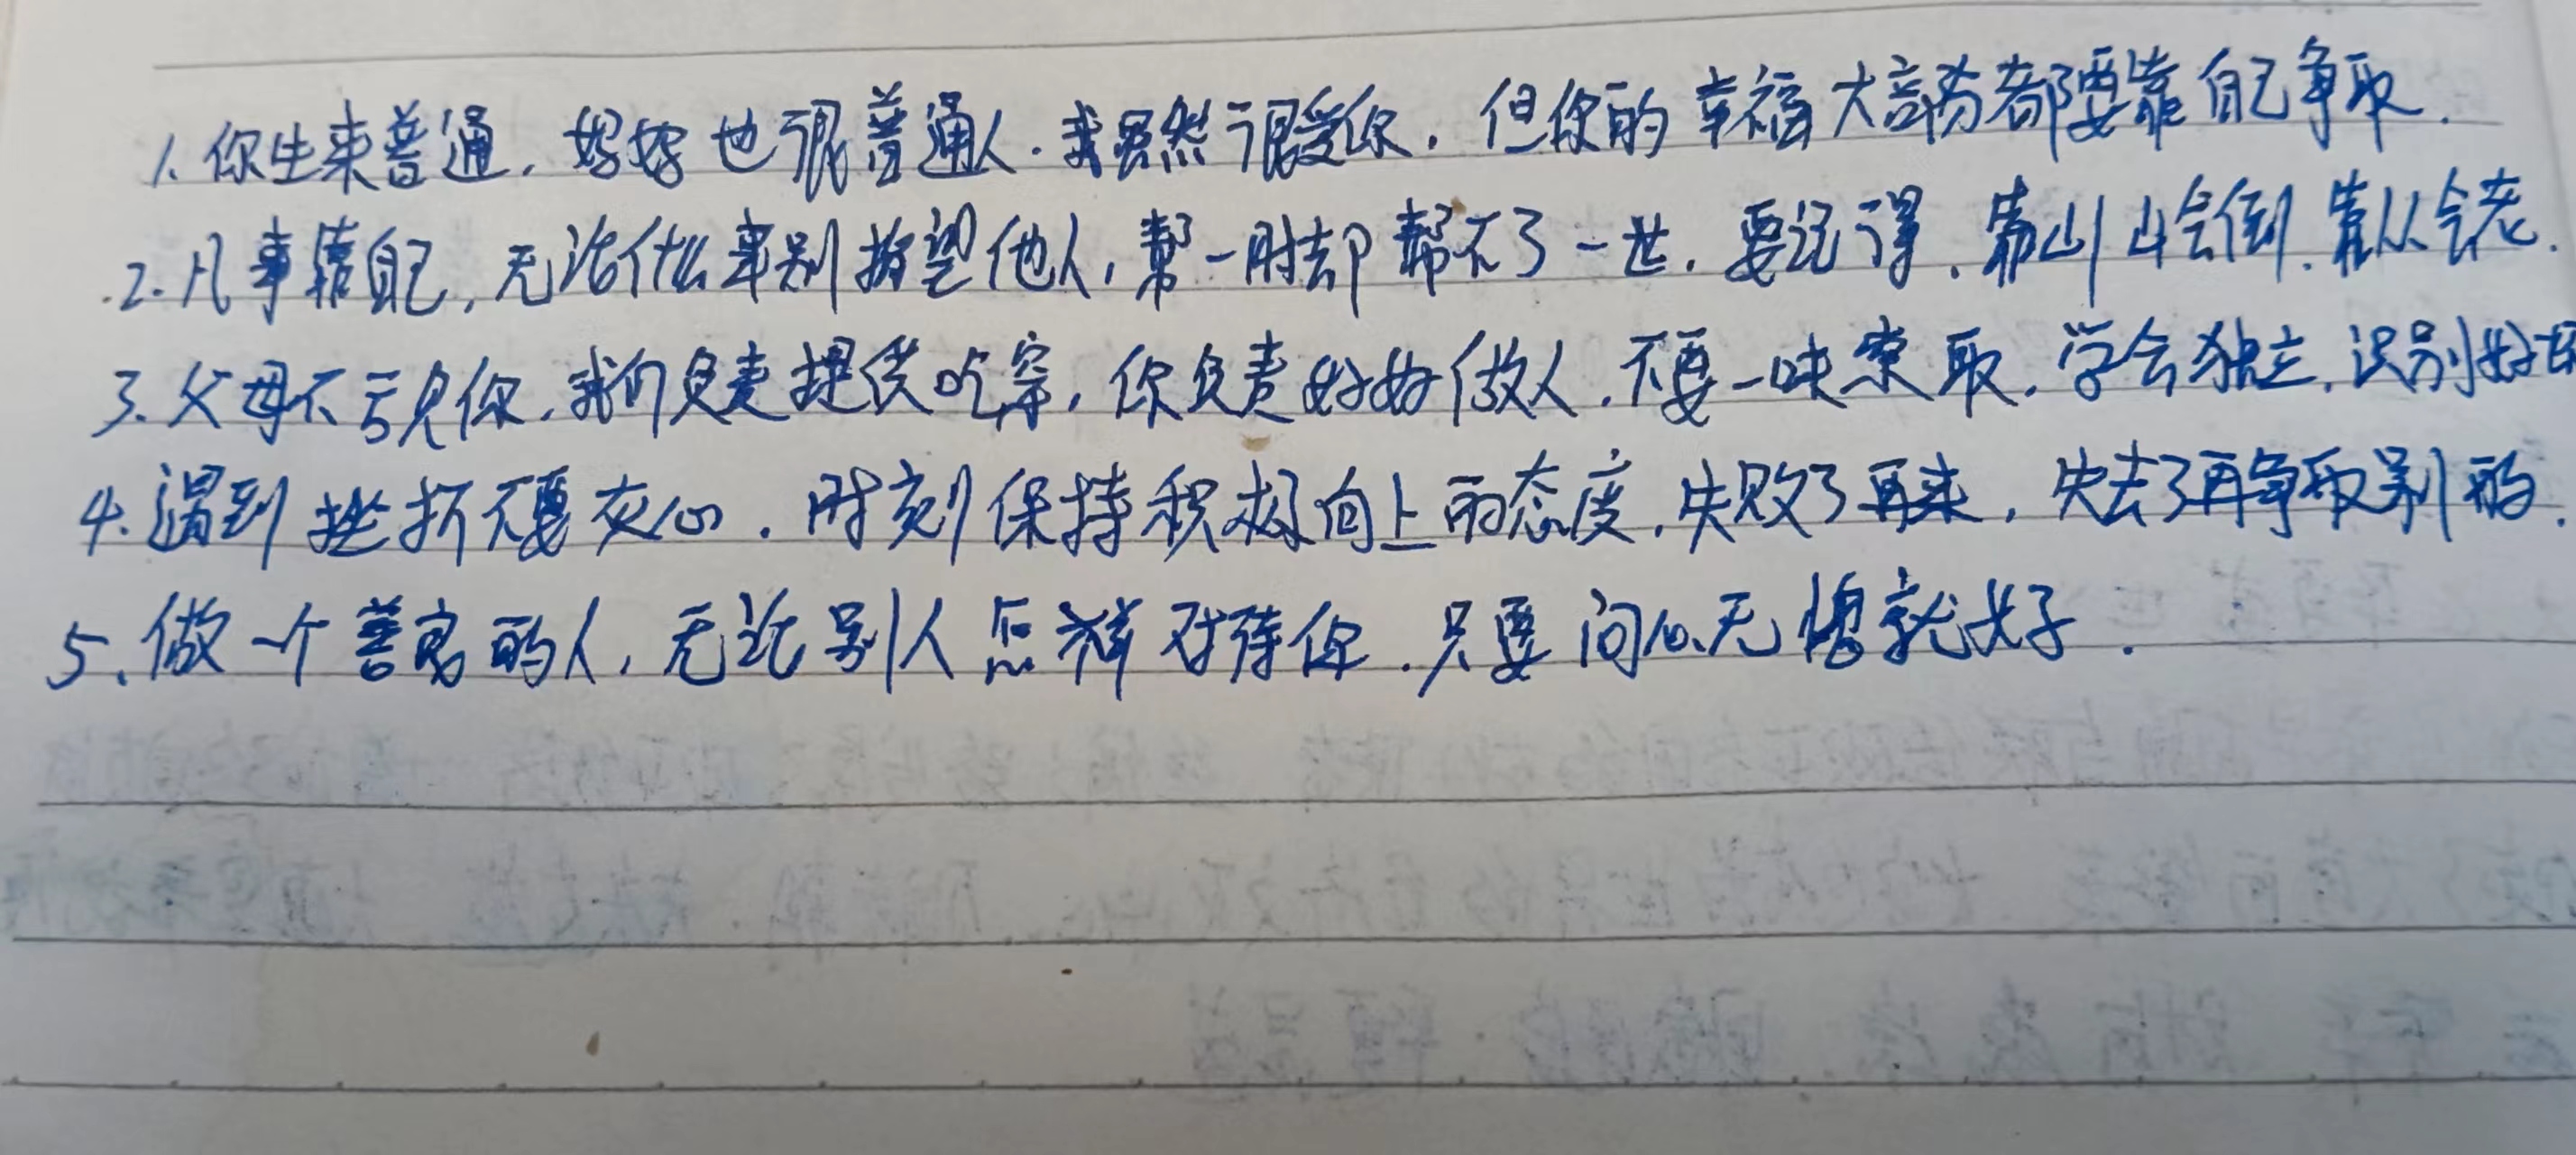 1.你生来普通,妈妈也很普通人.我虽然很爱你.但你的幸福大部分都要靠自己争取.
2.凡事靠自己,无论什么事别指望他人,帮一时却帮不了一世.要记得.靠山山会倒.靠人人会老.
3.父母不亏欠你.我们负责提供吃穿,你负责好好做人.不要一味索取.学会独立.识别好坏
4.遇到挫折不要灰心.时刻保持积极向上的态度.失败了再来,失去了再争取别的.
5.做一个善良的人,无论别人怎样对待你.只要问心无愧就好.